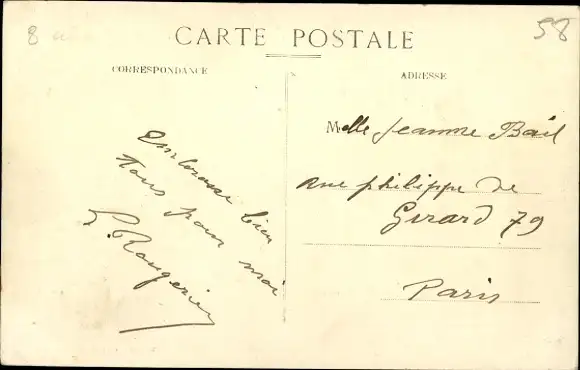 8
58
CARTE POSTALE
CORRESPONDANCE
embrasse bien
tous pour moi
ADRESSE
Melle Jeanne Bail
rue philippe de
Girard 79
Paris